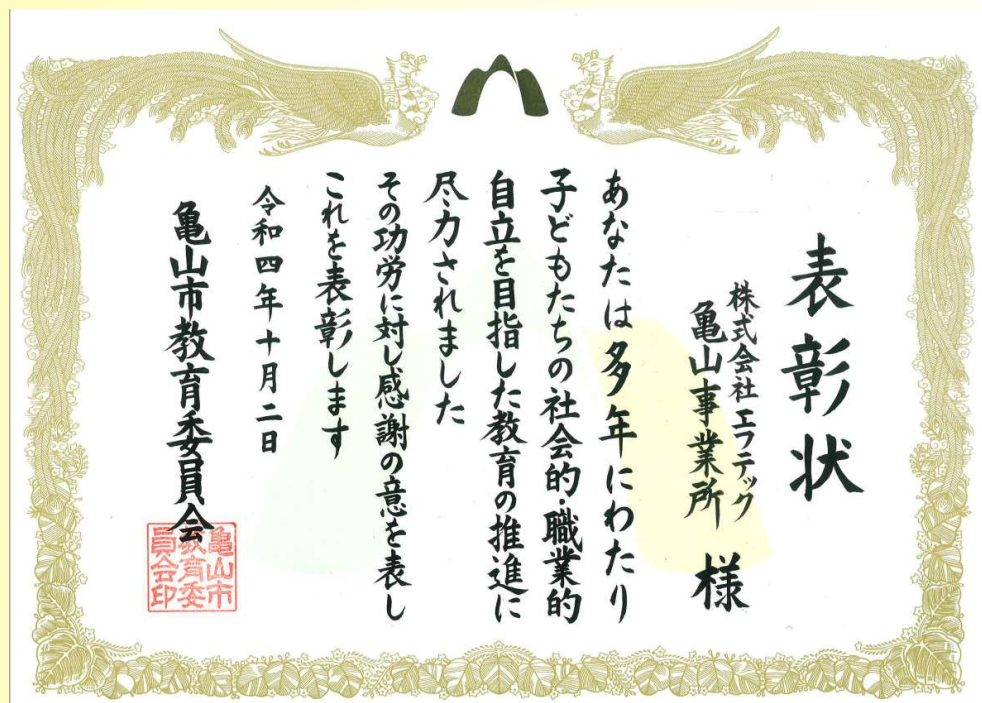 表彰状
株式会社エフテック
亀山事業所 様
あなたは多年にわたり
子どもたちの社会的・職業的
自立を目指した教育の推進に
尽力されました
その功労に対し感謝の意を表し
これを表彰します
令和四年十月二日
亀山市教育委員会
亀山市
教育委
員会印